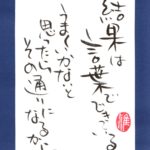 結果は
言葉でできている
うまくいかないと
思ったら
その通りになるから